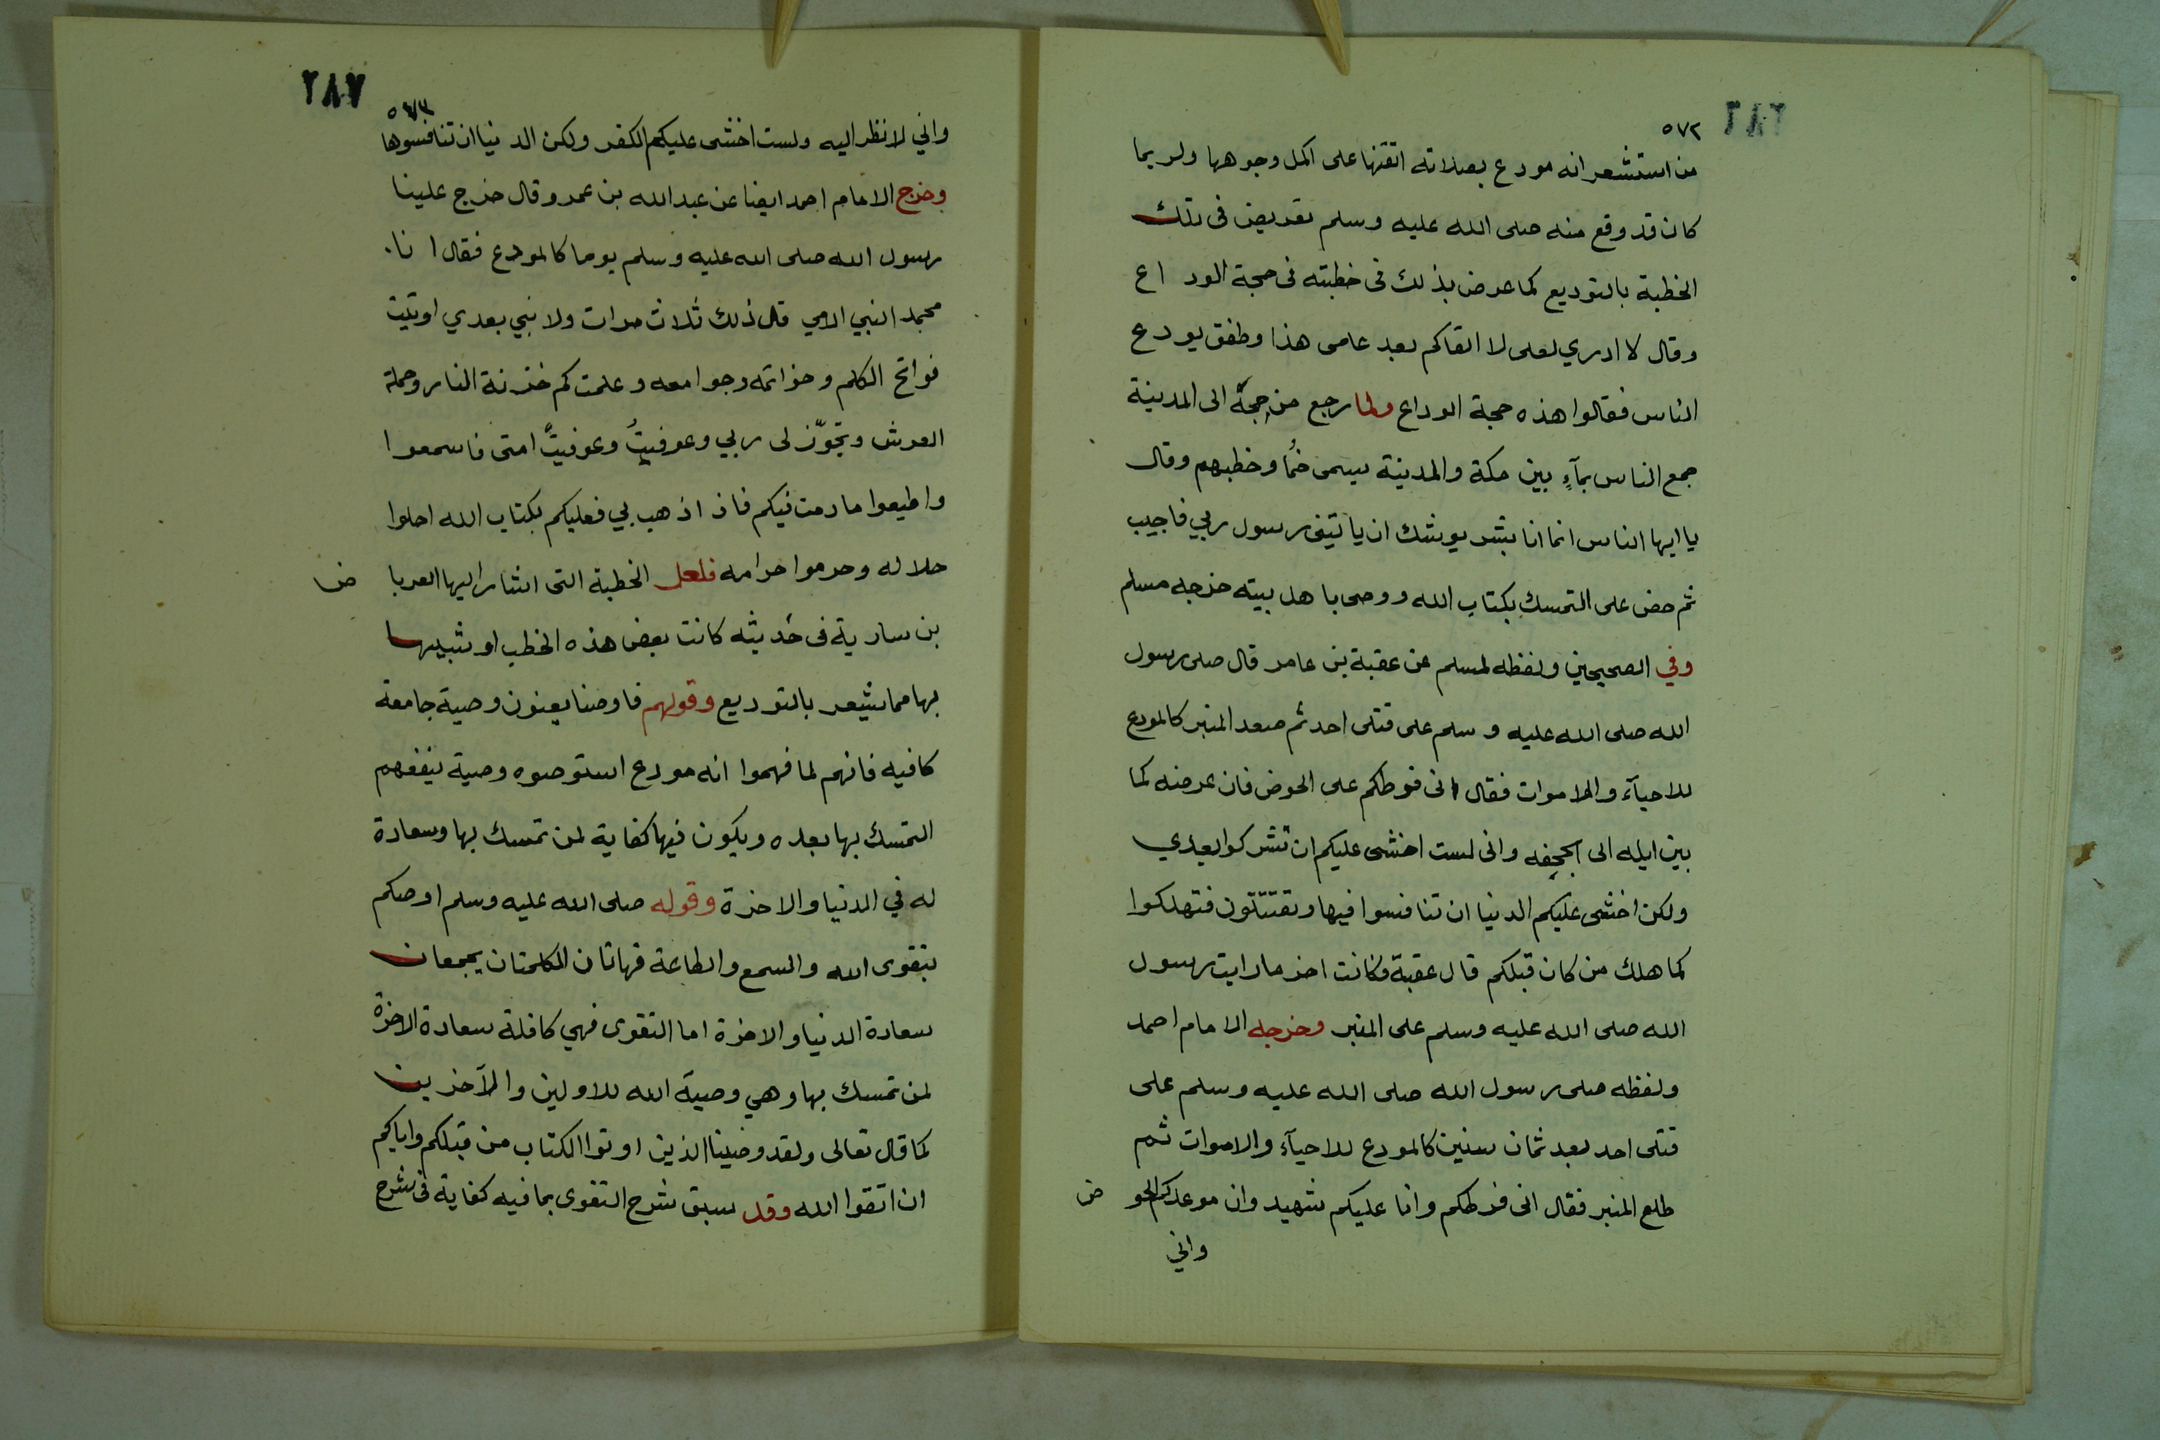 ٢٨٦
٥٧٢
من استشعر انه مودع بصلاته اتقنها على اكمل وجوهها ولربما
كان قد وقع منه صلى الله عليه وسلم تعريض فى تلك
الخطبة بالتوديع كما عرض بذلك فى خطبته فى حجة الود اع
وقال لا ادري لعلى لا القاكم بعد عامى هذا وطفق يودع
الناس فقالوا هذه حجة الوداع ولما رجع من حجة الى المدينة
جمع الناس بمآءٍ بين مكة والمدينة يسمى خُمًا وخطبهم وقال
يا ايها الناس انما انا بشر يوشك ان ياتينى رسول ربي فاجيب
ثم حض على التمسك بكتاب الله ووصى با هل بيته خرجه مسلم
وفي الصحيحين ولفظه لمسلم عن عقبة بن عامر قال صلى رسول
الله صلى الله عليه وسلم على قتلى احد ثم صعد المنبر كالمودع
للاحيآء والاموات فقال انى فرطكم على الحوض فان عرضه كما
بين ايله الى الجحفه وانى لست اخشى عليكم ان تشركوا بعدي
ولكن اخشى عليكم الدنيا ان تنافسوا فيها وتقتتلون فتهلكوا
كما هلك من كان قبلكم قال عقبة فكانت اخر ما رايت رسول
الله صلى الله عليه وسلم على المنبر وخرجه الامام احمد
ولفظه صلى رسول الله صلى الله عليه وسلم على
قتلى احد بعد ثمان سنين كالمودع للاحيآء والاموات ثم
طلع المنبر فقال انى فرطكم وانا عليكم شهيد وان موعدكم الحو ض
واني
٢٨٧
٥٧٣
واني لانظر اليه ولست اخشى عليكم الكفر ولكن الد نيا ان تنافسوها
وخرج الامام احمد ايضا عن عبد الله بن عمرو قال خرج علينا
رسول الله صلى الله عليه وسلم يوما كالمودع فقال ا نا.
محمد النبي الامي قال ذلك ثلاث مرات ولا نبي بعدي اوتيت
فواتح الكلم وخواتمه وجوامعه وعلمت كم خزنة النار وحملة
العرش وتجوّز لى ربي وعوفيتُ وعوفيتْ امتى فاسمعوا
واطيعوا ما دمت فيكم فاذ اذهب بي فعليكم بكتاب الله احلوا
حلاله وحرموا حرامه فلعل الخطبة التى اشار اليها العربا ض
بن سارية فى حديثه كانت بعض هذه الخطب او شبيها
بها مما يشعر بالتوديع وقولهم فاوصنا يعنون وصية جامعة
كافيه فانهم لما فهموا انه مودع استوصوه وصية ينفعهم
التمسك بها بعده ويكون فيها كفاية لمن تمسك بها وسعادة
له في الدنيا والاخرة وقوله صلى الله عليه وسلم اوصكم
بتقوى الله والسمع والطاعة فهاتان الكلمتان يجمعان
سعادة الدنيا والاخرة اما التقوى فهي كافلة سعادة الاخرة
لمن تمسك بها وهي وصية الله للاولين والآخرين
كما قال تعالى ولقد وصينا الذين اوتوا الكتاب من قبلكم واياكم
ان اتقوا الله وقد سبق شرح التقوى بما فيه كفاية فى شرح